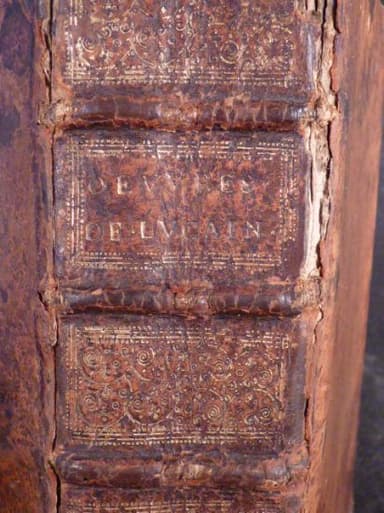 OEVVRES
DE·LVCAIN·